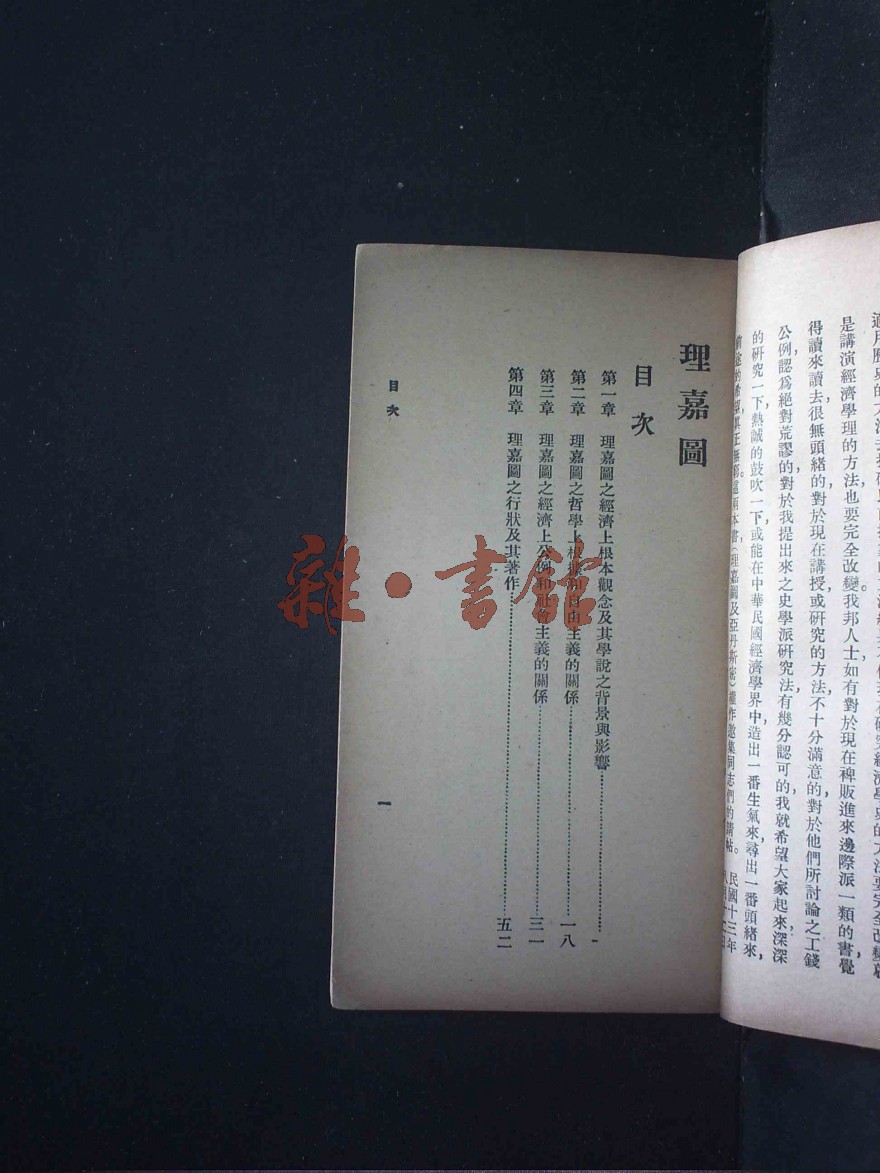 是講演經濟學理的方法也要完全改變。我邦人士如有對於現在裨販進來邊際派一類的書覺
得讀來讀去很無頭緒的,對於現在講授或研究的方法,不十分滿意的,對於他們所討論之工錢
公例,認爲絕對荒謬的,對於我提出來之史學派研究法有幾分認可的,我就希望大家起來深深
的研究一下,熱誠的鼓吹一下,或能在中華民國經濟學界中造出一番生氣來,尋出一番頭緒來,
這兩本書(理嘉圖及亞丹斯密)權作邀集同志們的請帖。
民國十三年
理嘉圖
目次
第一章 理嘉圖之經濟上根本觀念及其學說之背景與影響 一
第二章 理嘉圖之哲學上根據和自由主義的關係 一八
第三章 理嘉圖之經濟上公例和社會主義的關係 三一
第四章 理嘉圖之行狀及其著作 五二
目次
一
雜·書館